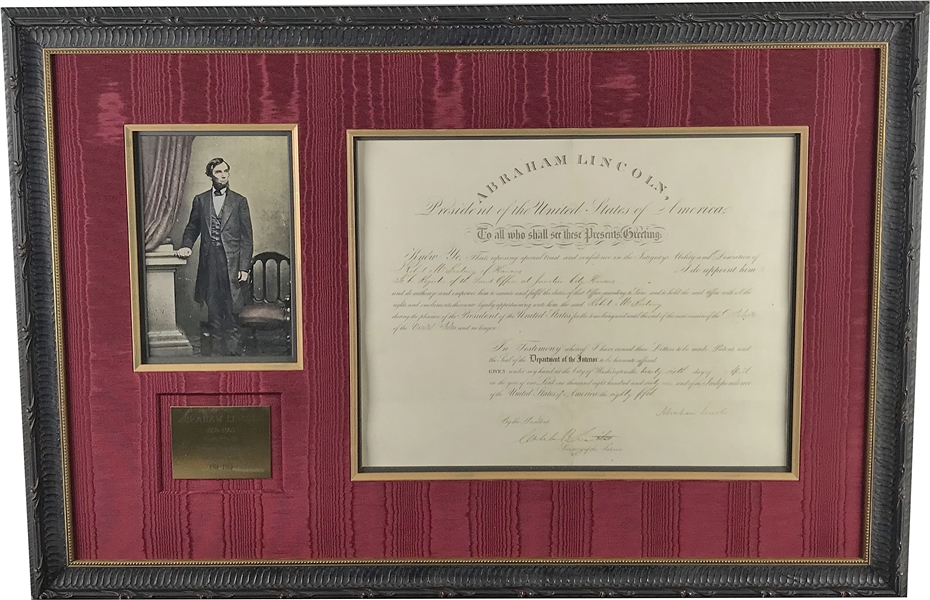 ABRAHAM LINCOLN,
President of the United States of America,
To all who shall see these Presents, Greeting:
Know Ye, That reposing special trust and confidence in the Integrity, Ability and Discretion of
of Kansas I do appoint him
of the Land Office at Junction City Kansas
and do authorize and empower him to execute and fulfil the duties of that Office according to Law; and to hold the said Office with all the
rights and emoluments thereunto legally appertaining unto him the said Robert M
during the pleasure of the President of the United States for the time being and until the end of the next session of the
of the and no longer
In Testimony whereof I have caused these Letters to be made Patent and
the Seal of the Department of the Interior to be hereunto affixed
GIVEN under my hand at the City of Washington the twenty sixth day of April
in the year of our Lord one thousand eight hundred and sixty one and of the Independence
of the United States of America the eighty fifth
Abraham Lincoln
By the President
Secretary of the Interior
ABRAHAM LINCOLN